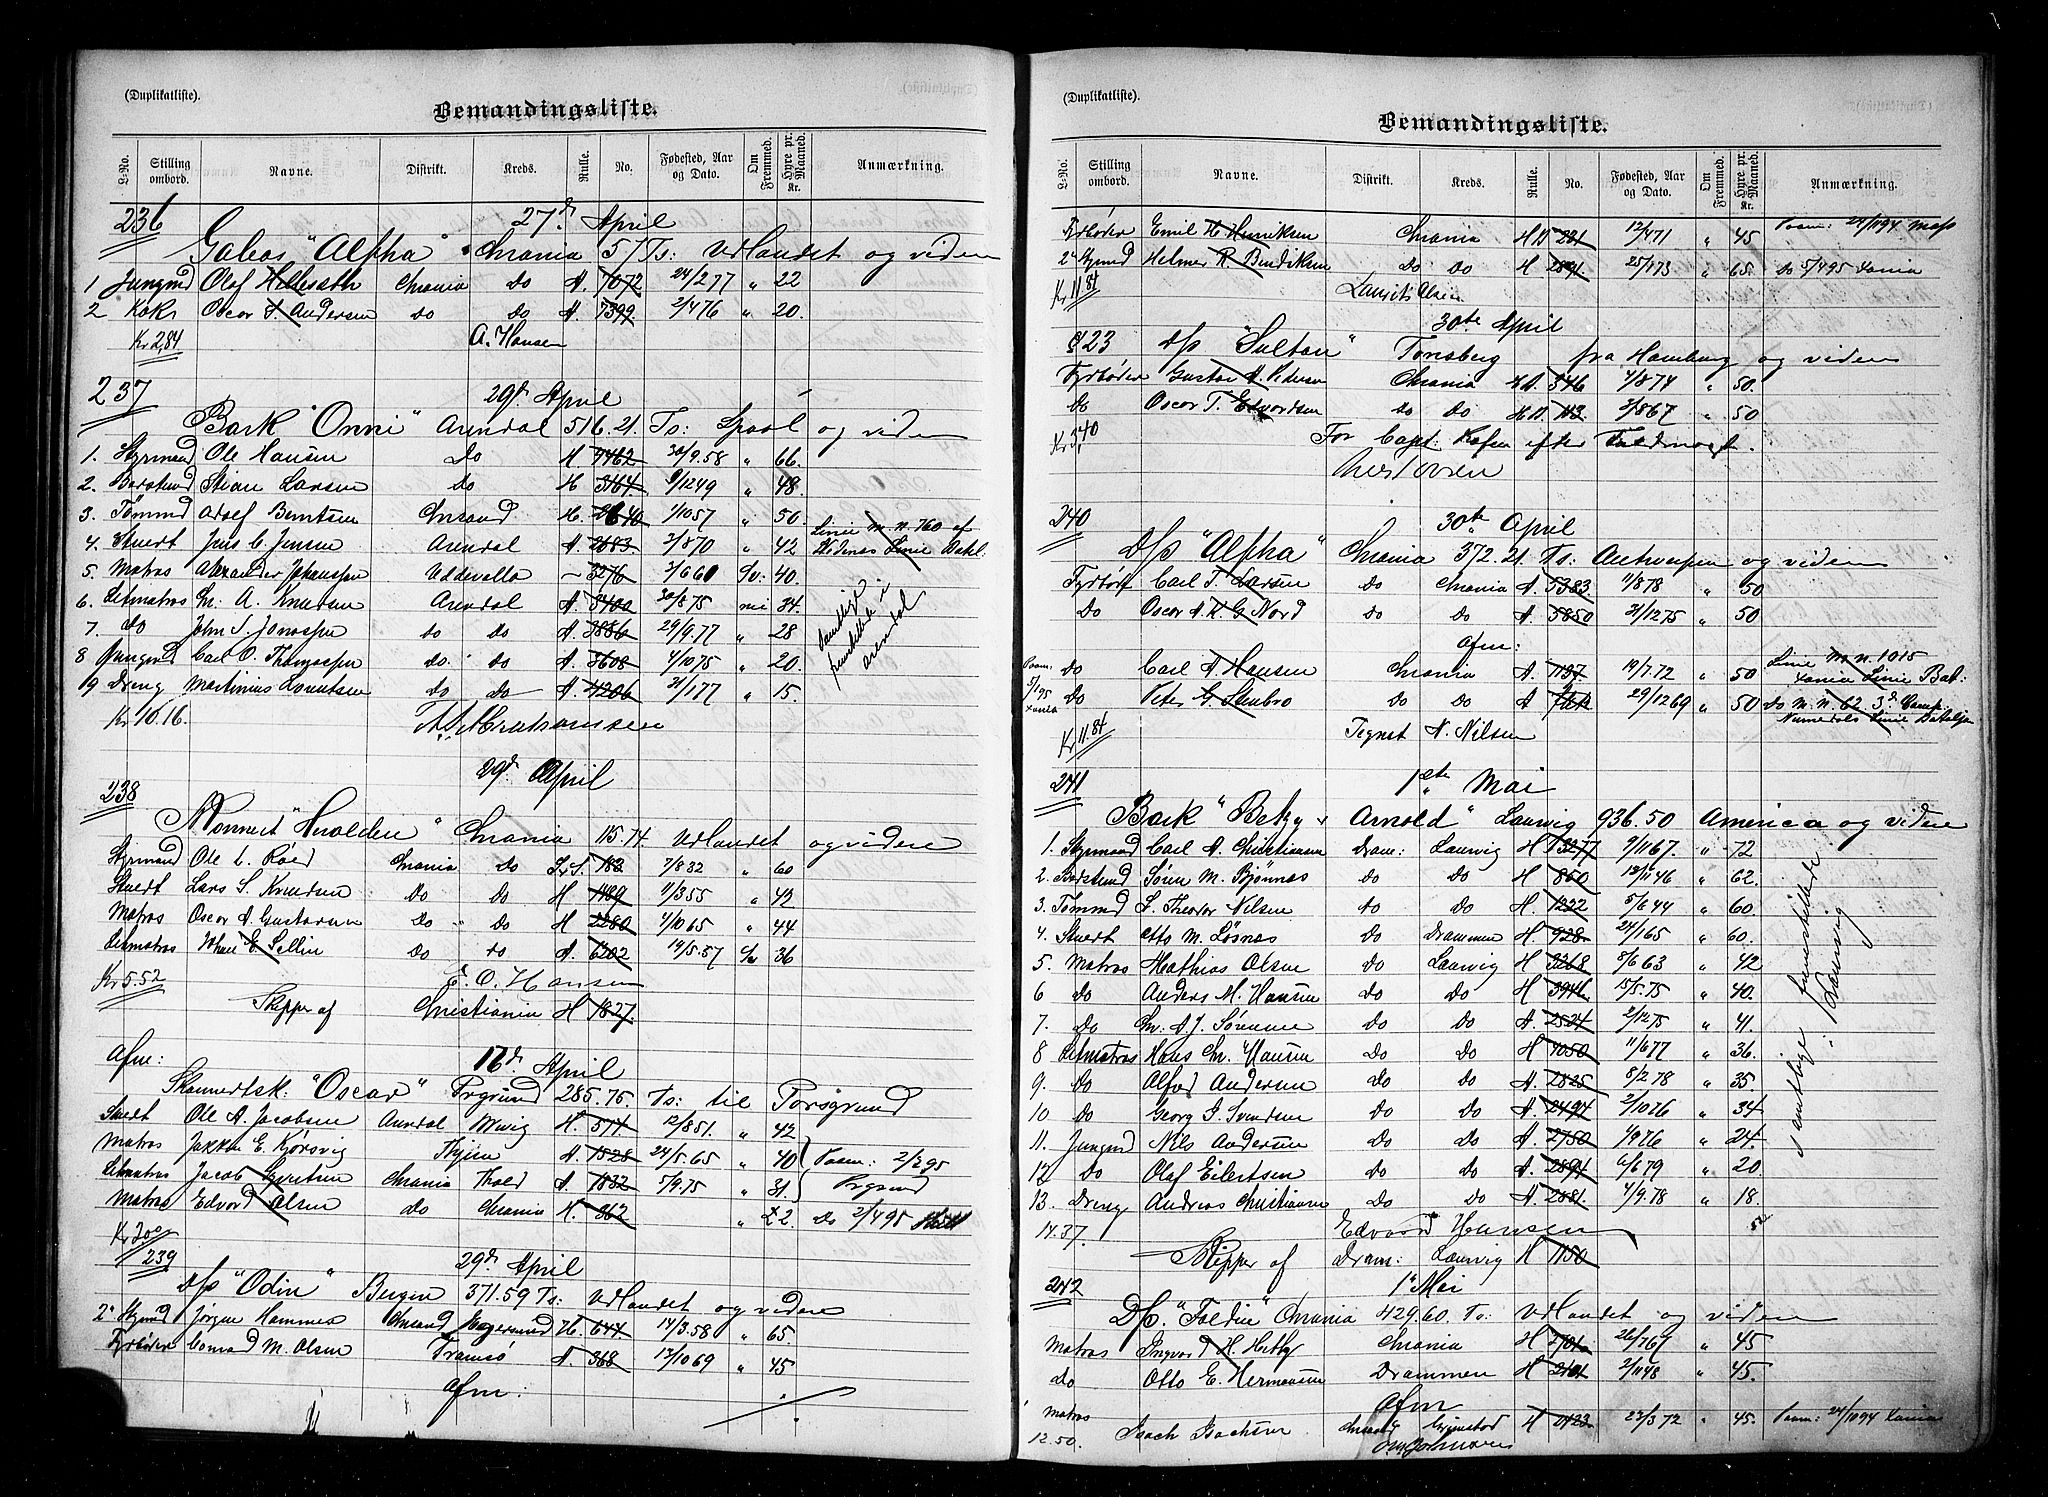 (Duplikatliste).
Bemandingsliste.
L-No. Stilling ombord. Navne. Distrikt. Kreds. Rulle. No. Fødested, Aar og Dato. Om Fremmed. Hyre pr. Maaned. Kr. Anmærkning.
236 27de April
Galeas "Alpha" Chrania 51 Ts: Udlandet og videre
1 Jungmd Olaf Chrania do A. 7072 24/2 77 " 22
2 Kok Oscar Andersen do do A. 7399 2/4 76 " 20.
Kr 2,84 A. Hansen
237 29de April
Bark "Onni" Arendal 516.21. Ts: og videre
1. Styrmand Ole Hansen do H 30/9.58 " 66.
2. Stian Larsen do H. 3164 9/12 49 " 48.
3. Tømmd Adolf Berntsen Chrsand H. 1/10 57 " 50.
4. Stuert Jens C. Jensen Arendal A. 2683 2/8 70 " 42 Linie M. N. 760 af
5. Matros Alexander Johanssen Uddevalla – 3276 3/6 60 Sv: 40.
6. Letmatros Chr. A. Knudsen Arendal A. 3400 30/8 75 nei 34.
7. do John S. Jonassen do do A. 3886 29/9.77 " 28
8 Jungmd Carl O. Thomassen do. do A. 3608 4/10 75 " 20.
9 Dreng Martinius Lorentsen do do A. 4206 31/1 77 " 15.
samtlige paamelte i Arendal
Kr 10.16.
238 29de April
Skonnert "Heralden" Chrania 115.74 Udlandet og videre
Styrmand Ole L. Røed Chrania do 183 7/8 32 " 60
Stuert Lars S. Knudsen do do H 1489 11/3 55 " 42
Matros Oscar A. Gustavsen do do H 2280 4/10 65 " 44
Letmatros Johan E. Sellin do do A. 6202 14/5.57 36
Kr 5.52 E. O. Hansen
Skipper af Christiania H 1827.
Afm: 16de April
Skonnertsk: "Oscar" Prgrund 285.75. Ts: til Porsgrund
Stuert Ole A. Jacobsen Arendal H. 517. 12/8 51. " 42
Matros E. Kjørsvig Thjem A 1528 24/5.65 " 40 Paam: 2/2 95
Letmatros Jacob Chrania A. 1832 5/9.75 " 31. Prgrund
Matros Edvard Olsen do Chrania H. 362 " 22. do 2/4 95
Kr 3.00
239 29de April
D/S "Odin" Bergen 371.59 Ts: Udlandet og videre
2n Stymd Jørgen Hammes Chrsand H. 644 14/3.58 " 65.
Fyrbøder Conrad M. Olsen Tromsø A. 368 17/10 69 " 45
Afm:
(Duplikatliste).
Bemandingsliste.
L-No. Stilling ombord. Navne. Distrikt. Kreds. Rulle. No. Fødested, Aar og Dato. Om Fremmed. Hyre pr. Maaned. Kr. Anmærkning.
Fyrbøder Emil H. Henriksen Chrania 231 12/4 71 " 45 Paam: 24/11 94
2n Stymd Helmer R. Bendiksen do do H 2891. 25/1 73 " 65. do 5/4 95 Xania
Kr 11.84 Laurits Olsen
30te April
§ 23 D/S "Sultan" Tønsberg fra Hamburg og videre
Fyrbøder Gustav A. Pedersen Chrania 346 4/8 74 " 50.
do Oscar T. Edvardsen do do 113. 3/8 67 " 50
Kr 3,40 For Capt: efter Fuldmagt.
240 30te April
D/S "Alpha" Chrania 372.21. Ts: Antwerpen og videre
Fyrbød Carl T. Larsen do Chrania A. 5383 11/8 78 " 50
do Oscar A. G. Nord do do A. 5850 31/12 75 " 50
Afm:
Paam: 5/1 95 Xania
do Carl A. Hansen Chrania A. 1137 19/7.72 " 50 Linie M. N. 1015 Xania Linie Bat:
do Peter G. Stenbro do do A 29/12 69 " 50 do M. N. 62. 3die Comp. Numedals Linie Bataljon
Kr 11.84 Tegnet N. Nilsen
241 1ste Mai
Bark "Betzy & Arnold" Laurvig 936.50 America og videre
1. Styrmand Carl A. Christiansen Dram: Laurvig H 3277 9/11 67. " 72
2. Søren M. Bjønnes do do H 850 12/11 46 " 62.
3. Tømmd L. Theodor Nilsen do do H. 1222 5/6 44 " 60.
4. Stuert Otto M. Løsnes do Drammen H 928. 24/1 65 " 60.
5. Matros Mathias Olsen do Laurvig H 3268 8/6 63 " 42
6 do Anders M. Hansen do do H 3946. 15/5.75 " 40.
7. do Chr. A. J. Sørensen do do A. 2524 2/12 75 " 41.
8 Letmatros Hans Chr. Hansen do do H 4050 11/6 77 " 36.
9. do Alfred Andersen do do A. 2825 8/2.78 " 35.
10. do Georg S. Svendsen do do A. 2494 2/10 76 " 34
11. Jungmd Nils Andersen do do A. 2750 1/8 76 " 24
12. do Olaf Eilertsen do do A. 2894 6/6 79 " 20.
13. Dreng Andreas Christiansen do do A. 2881. 4/9.78 " 18
samtlige i Laurvig
17.37. Edvard Hansen
Skipper af Dram: Laurvig H 1150
242 1ste Mai
D/S. "Faldin" Chrania 429.60. Ts: Udlandet og videre
Matros Ingvard H. Chrania H 26/7 67 " 45
do Otto E. Hermansen Drammen H 2/11 48 " 45.
Afm
Matros Isach Isachsen Chrsand Grimstad H 23/3 72 " 45. Paam: 24/10 94 Xania
12.50.